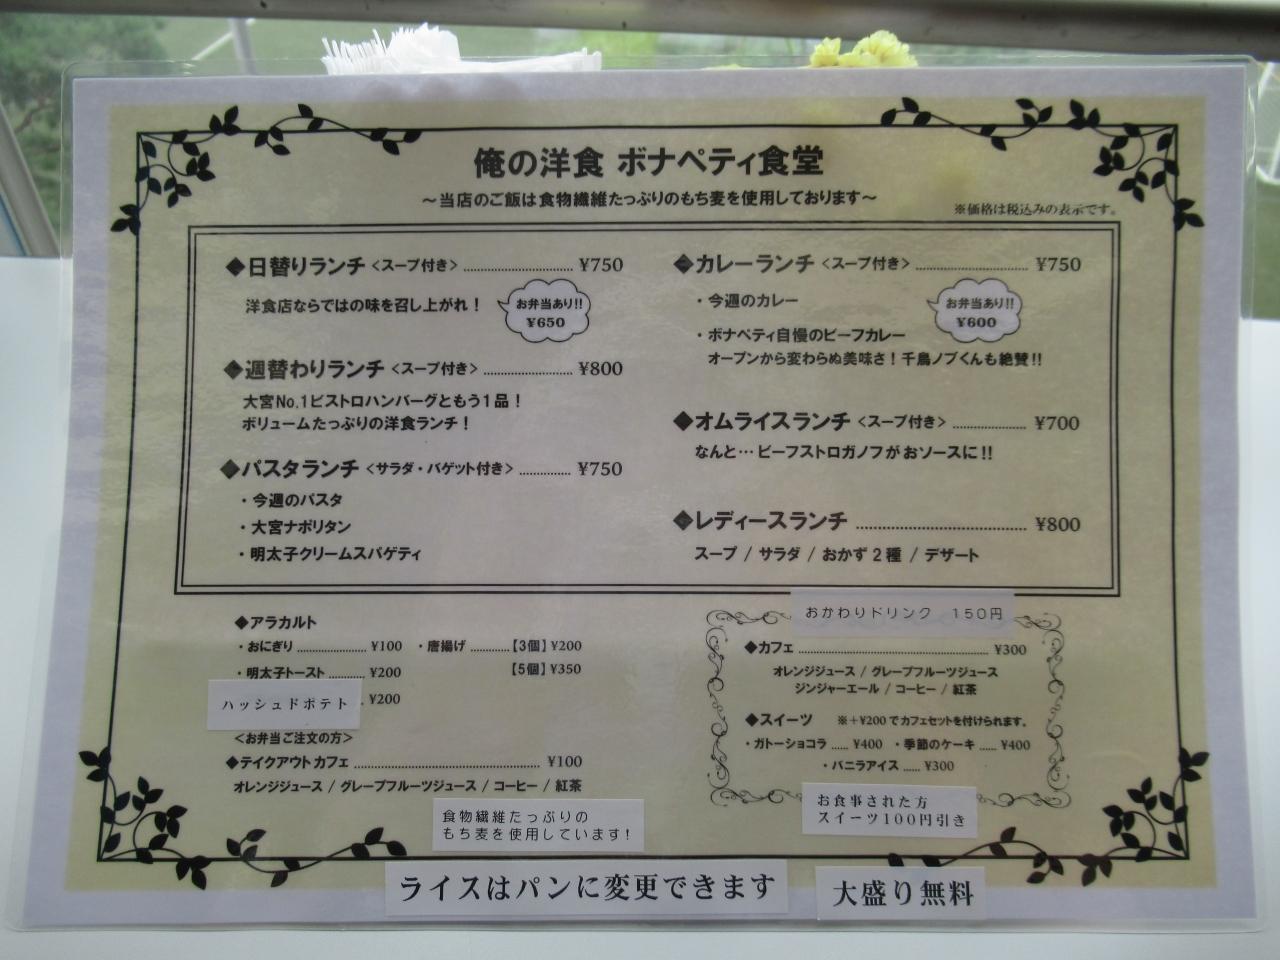 俺の洋食 ボナペティ食堂
～当店のご飯は食物繊維たっぷりのもち麦を使用しております～
※価格は税込みの表示です。
◆日替りランチ〈スープ付き〉 ¥750
洋食店ならではの味を召し上がれ！
お弁当あり!!
¥650
◆週替わりランチ〈スープ付き〉 ¥800
大宮No.1ビストロハンバーグともう1品！
ボリュームたっぷりの洋食ランチ！
◆パスタランチ〈サラダ・バゲット付き〉 ¥750
・今週のパスタ
・大宮ナポリタン
・明太子クリームスパゲティ
◆カレーランチ〈スープ付き〉 ¥750
・今週のカレー
お弁当あり!!
¥600
・ボナペティ自慢のビーフカレー
オープンから変わらぬ美味さ！千鳥ノブくんも絶賛!!
◆オムライスランチ〈スープ付き〉 ¥700
なんと…ビーフストロガノフがおソースに!!
◆レディースランチ ¥800
スープ / サラダ / おかず2種 / デザート
◆アラカルト
・おにぎり ¥100 ・唐揚げ 【3個】¥200
・明太子トースト ¥200 【5個】¥350
ハッシュドポテト ¥200
〈お弁当ご注文の方〉
◆テイクアウトカフェ ¥100
オレンジジュース / グレープフルーツジュース / コーヒー / 紅茶
食物繊維たっぷりの
もち麦を使用しています！
おかわりドリンク 150円
◆カフェ ¥300
オレンジジュース / グレープフルーツジュース
ジンジャーエール / コーヒー / 紅茶
◆スイーツ ※＋¥200でカフェセットを付けられます。
・ガトーショコラ ¥400 ・季節のケーキ ¥400
・バニラアイス ¥300
お食事された方
スイーツ100円引き
ライスはパンに変更できます
大盛り無料